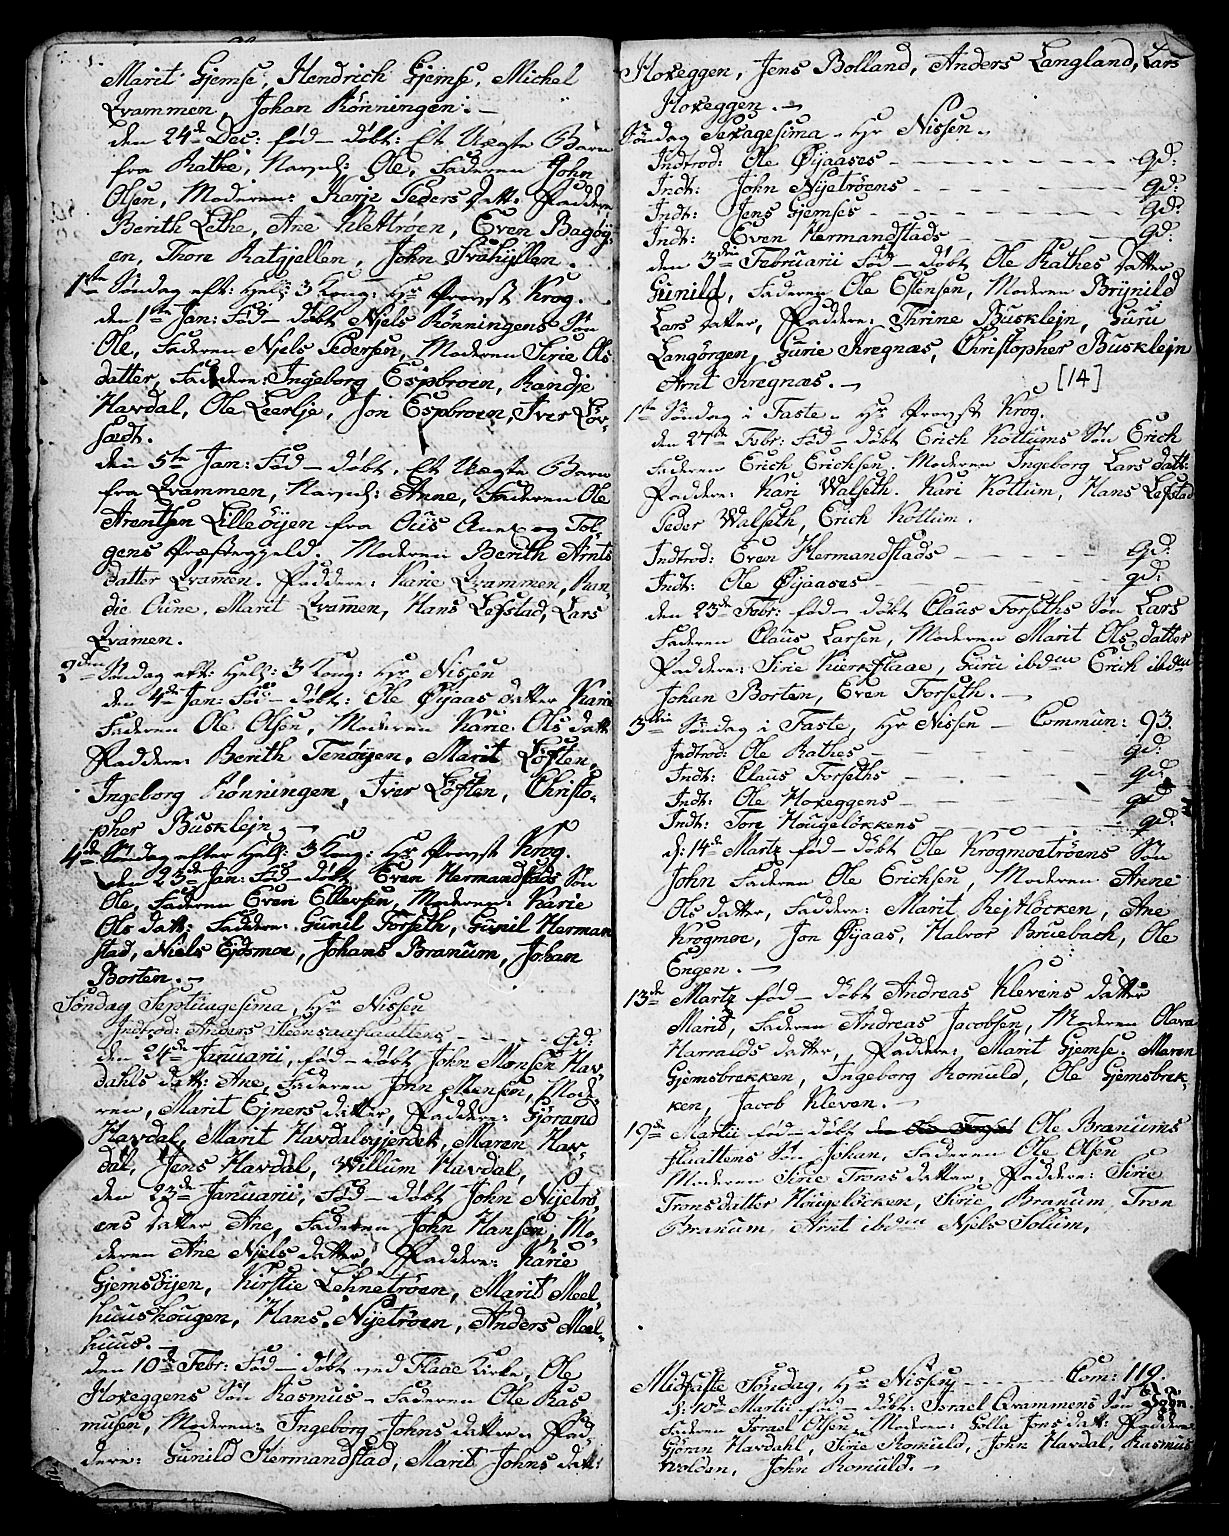 Marit Gjemse, Hendrich Gjemse, Michel
Qvammen, Johan Rönningen. —
den 24de Dec: fød — døbt: Et Uægte Barn
fra Rathe, Nafnl: Ole, Faderen John
Olsen, Moderen: Karje Peders datt: Faddere
Berith Lethe, Ane Klettröen, Even Bagöy-
en, Thore Ratgjellen, John Svahyllen.
1ste Söndag eft: Hell: 3 Kong: Hr Provst Krog.
den 1ste Jan: Fød — døbt Niels Rönningens Søn
Ole, Faderen Niels Pedersen, Moderen Sirie Ols
datter, Faddere: Ingeborg Espbroen, Randje
Havdal, Ole Leerlje, Jon Espbroen, Iver Löv-
sædt.
den 5te Jan: Fød — døbt. Et Uægte Barn
fra Qvammen, Nafnl: Anne, Faderen Ole
Arentsen Lilleöyen fra Ous Annex og Tol-
gens Præstegjeld. Moderen Berith Arnts
datter Qvamen. Faddere: Karie Qvammen, Ran-
die Oune, Marit Qvamen, Hans Lefstad, Lars
Qvamen.
2den Söndag eft: Hell: 3 Kong: Hr Nissen
den 4de Jan: Fød — døbt: Ole Öyaas datter Karie
Faderen Ole Olsen, Moderen Karie Ols datt
Faddere: Berith Tenöyen, Marit Löften,
Ingeborg Rönningen, Iver Löften, Christo-
pher Busklejn —
4de Söndag efter Hell: 3 Kong: Hr Provst Krog.
den 25de Jan: Fød — døbt Even Hermandstads Søn
Ole, Faderen Even Ellevsen, Moderen: Karie
Ols datt: Faddere: Gunil Forseth, Gunil Herman
stad, Niels Ejdsmoe, Johans Branum, Johan
Borten. —
Söndag Septuagesima, Hr Nissen
Indtrod: Anders - - - qd:
den 24de Januarii, fød — døbt John Monsen Hav-
dahls datt: Ane, Faderen John Monsen, Mode-
ren, Marit Ejners datter, Faddere: Gjörand
Havdal, Marit Havdalsgjerdet, Maren Hav-
dal, Jens Havdal, Willum Havdal,
den 23de Januarii, Fød — døbt John Nijetrö-
ens datter Ane, Faderen John Hansen, Mo-
deren Ane Njels datter, Faddere: Karie
Gjemsöijen, Kirstie Lehnetröen, Marit Meel-
huushougen, Hans Nijetröen, Anders Meel-
huus. —
den 10de Febr: Fød — døbt ved Flaae Kirke, Ole
Hoxeggens Søn Rasmus — Faderen Ole Ras
musen, Moderen: Ingeborg Johns datter, Fad-
dere: Gunild Hermandstad, Marit Johns datt:
Hoxeggen, Jens Bolland, Anders Langland, Lars
Hoxeggen. —
Söndag Sexagesima — Hr Nissen.
Indtrod: Ole Öyaases — — — qd:
Indt: John Nijetröens — — — qd:
Indt: Jens Gjemses — — — qd:
Indt: Even Hermandstads — — — qd:
den 3die Februarii Fød — døbt Ole Rathes datter
Gunild, Faderen Ole Estensen, Moderen Brynild
Lars datter, Faddere: Thrine Busklejn, Guru
Langörgen, Gurie Kregnæs, Christopher Busklejn
Arnt Kregnæs. —
[14]
1ste Söndag i Faste — Hr Provst Krog.
den 27de Febr: Fød — døbt Erich Kottums Søn Erich
Faderen Erich Erichsen, Moderen Ingeborg Lars datt:
Faddere: Kari Walseth. Kari Kottum, Hans Lefstad
Peder Walseth, Erich Kottum.
Indtrod: Even Hermandstads — — — qd:
Indt: Ole Öyaases — — — qd:
den 23de Febr: fød — døbt Claus Forseths Søn Lars
Faderen Claus Larsen, Moderen Marit Ols datter
Faddere: Sirie Kierkflaae, Guru ibdem Erich ibdem
Johan Borten, Even Forseth. —
3die Söndag i Faste, Hr Nissen — Commun: 93.
Indtrod: Ole Rathes — — — qd:
Indt: Claus Forseths — — — qd:
Indt: Ole Hoxeggens — — — qd
Indt: Tore Hougelökkens — — — qd:
d: 14de Martz fød — døbt Ole Krogmoetröens Søn
John Faderen Ole Erichsen, Moderen Anne
Ols datter, Faddere: Marit Rejtlöcken, Ane
Krogmoe, Jon Öyaas, Halvor Bruebach, Ole
Engen. —
13de Martz fød — døbt Andreas Klevens datter
Marit, Faderen Andreas Jacobsen, Moderen Olava
Harralds datter, Faddere: Marit Gjemse. Maren
Gjemsbrekken, Ingeborg Romuld, Ole Gjemsbrek-
ken, Jacob Kleven. —
19de Martii fød — døbt Ole Branums
flaattens Søn Johan, Faderen Ole Olsen
Moderen Sirie Trons datter, Faddere: Sirie
Tronsdatter Hougelöcken, Sirie Branum, Tron
Branum, Arnt ibdem Niels Solum,
Midfaste Söndag, Hr Nissen — — — Com: 119.
d: 10de Martii fød — døbt: Israel Qvammens Søn
Faderen Israel Olsen, Moderen: Golla Jons datt: Faddere
Gjöran Havdahl, Sirie Romuld, John Havdal, Rasmus
Wolden, John Romuld. —